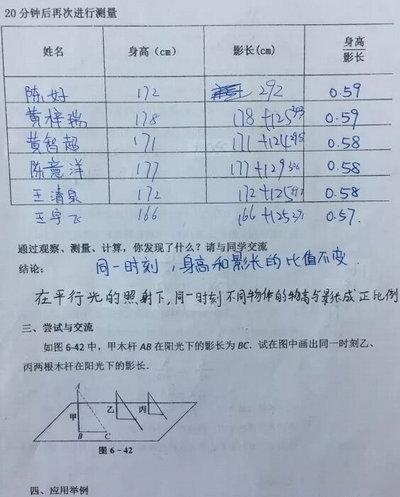 20分钟后再次进行测量
姓名 身高（cm） 影长(cm) 身高/影长
陈好 172 292 0.59
黄梓瑞 178 178+125 303 0.59
黄智超 171 171+124 295 0.58
陈意洋 177 177+129 306 0.58
王清泉 172 172+125 0.58
王宇飞 166 166+125 291 0.57.
通过观察、测量、计算，你发现了什么？请与同学交流
结论： 同一时刻，身高和影长的比值不变.
在平行光的照射下，同一时刻不同物体的物高与影长成正比例
三、尝试与交流
如图 6-42 中，甲木杆 AB 在阳光下的影长为 BC. 试在图中画出同一时刻乙、
丙两根木杆在阳光下的影长.
A
甲 乙 丙
B C
图 6－42
四、应用举例